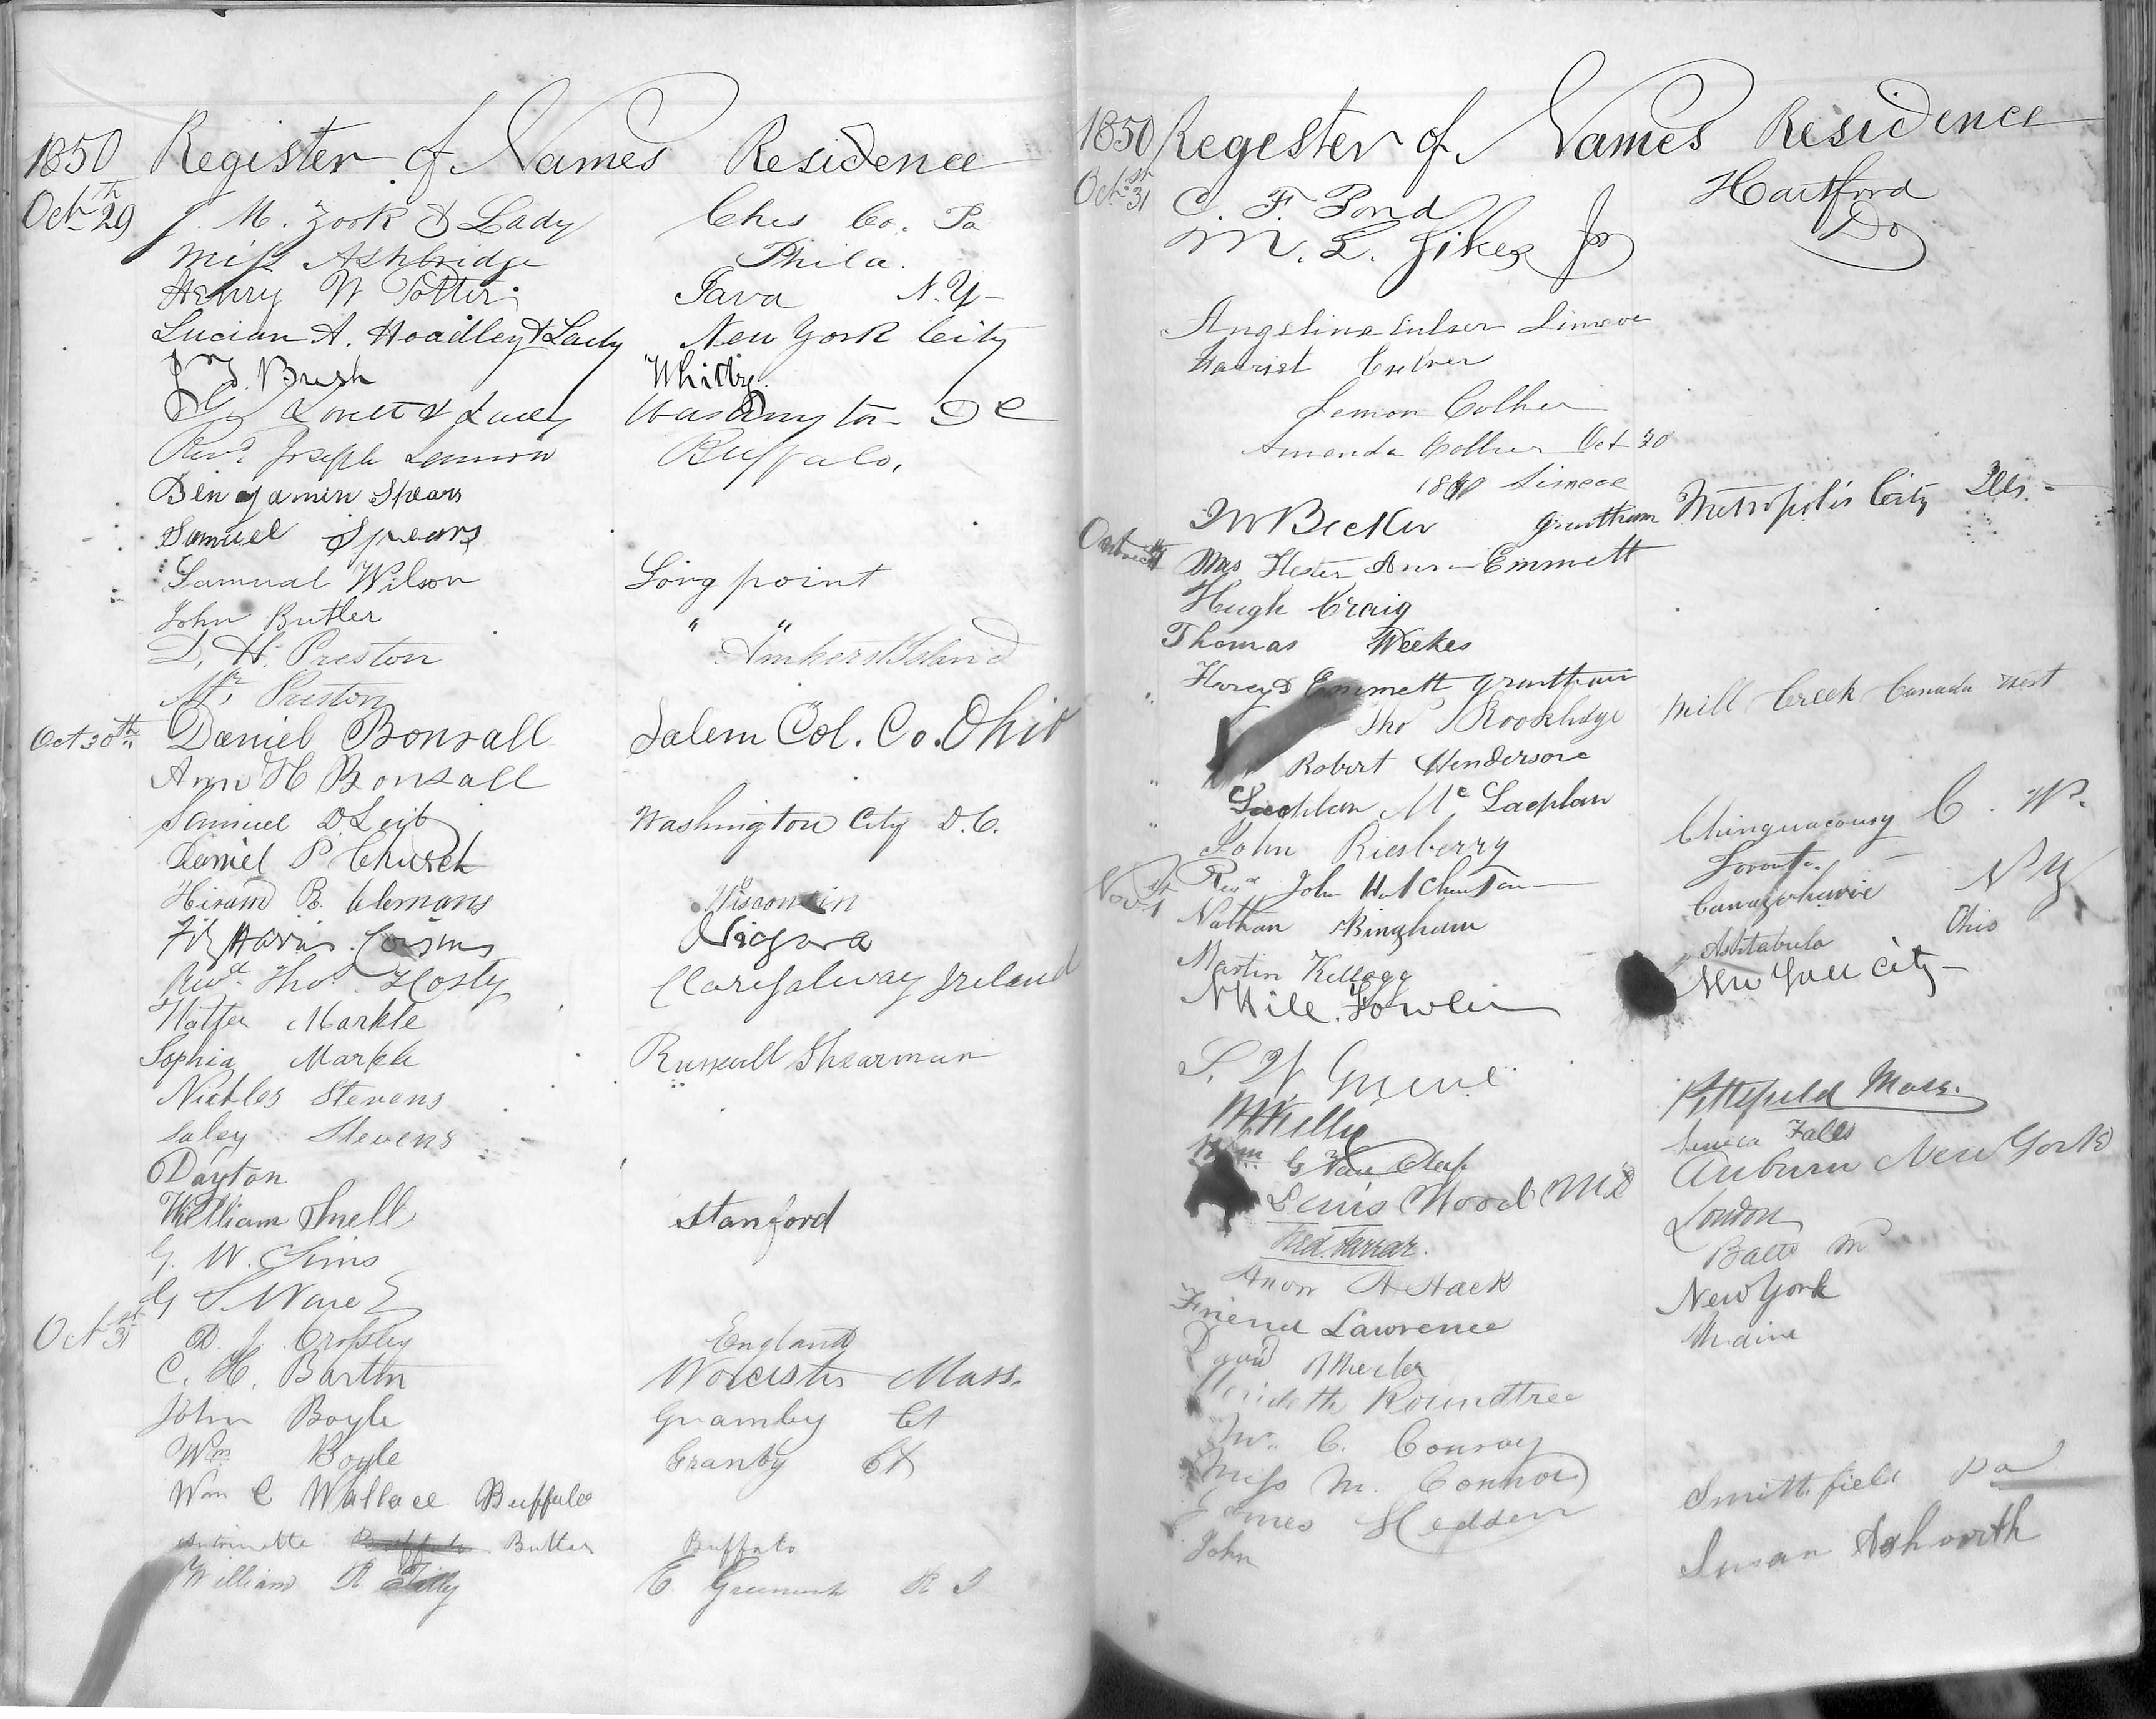 1850 Register of Names Residence
Octr 29th J. M. Zook & Lady Ches Co. Pa
Miss Ashbridge Phila.
Henry W Potter Java N.Y-
Lucian A. Hoadley & Lady New York City
J Bush Whitby.
Lovett & Lady Washington DC
Revd Joseph Lennon Buffalo,
Benjamin Spears
Samuel Spears
Samual Wilson Long point
John Butler " "
D. H. Preston Island
Preston
Oct 30th Daniel Bonsall Salem Col. Co. Ohio
Ann H Bonsall
Samuel D. Leib Washington City D.C.
Daniel P Church
Hiram B. Clemans Wisconsin
Niagara
Revd. Thos. Hosty Clare Galway Ireland
Markle
Sophia Markle Shearman
Nickles Stevens
Saley Stevens
Dayton
William Snell Stanford
G. W. Sims
G S Ware
Oct 31st D. J. Crossley England
C. H. Bartin Worcister Mass.
John Boyle Gramby Ct
Wm Boyle Granby Ct
Wm C Wallace Buffalo
Antoinette Buffalo Butler Buffalo
William R Tilly E. Greenwich R I
1850 Regester of Names Residence
Oct. 31st C. F. Pond Hartford
M. L. Sikes Jr Do
Angelina Culver Simcoe
Harriet Culver
Lemon Colher
Amenda Colher Oct 30
Simcoe
Becker Grantham Metropolis City Ills.-
Mrs Hester Ann Emmett
Hugh Craig
Thomas Weekes
Emmett Grantham
Tho Brookledge Mill Creek Canada West
Robert Henderson
Lachlan Mc Lachlan
John Riesberry Chinguacousy C. W.
Nov 1st Revd John Hutchinson Toronto.
Nathan Bingham Canajoharie N Y
Martin Kellogg Ashtabula Ohio
Mile. Fowler New York City-
S. W Greene
Kelly Pittsfield Mass.
Wm G Van Seneca Falls
Lewis Wood MD Auburn New York
Fred. Farrar. London
Anon A Hack Balto
Friend Lawrence New York
David Wheeler Maine
Roundtree
C. Conroy
Miss M. Connor
James Hedden Smithfield Pa
John Susan Ashworth